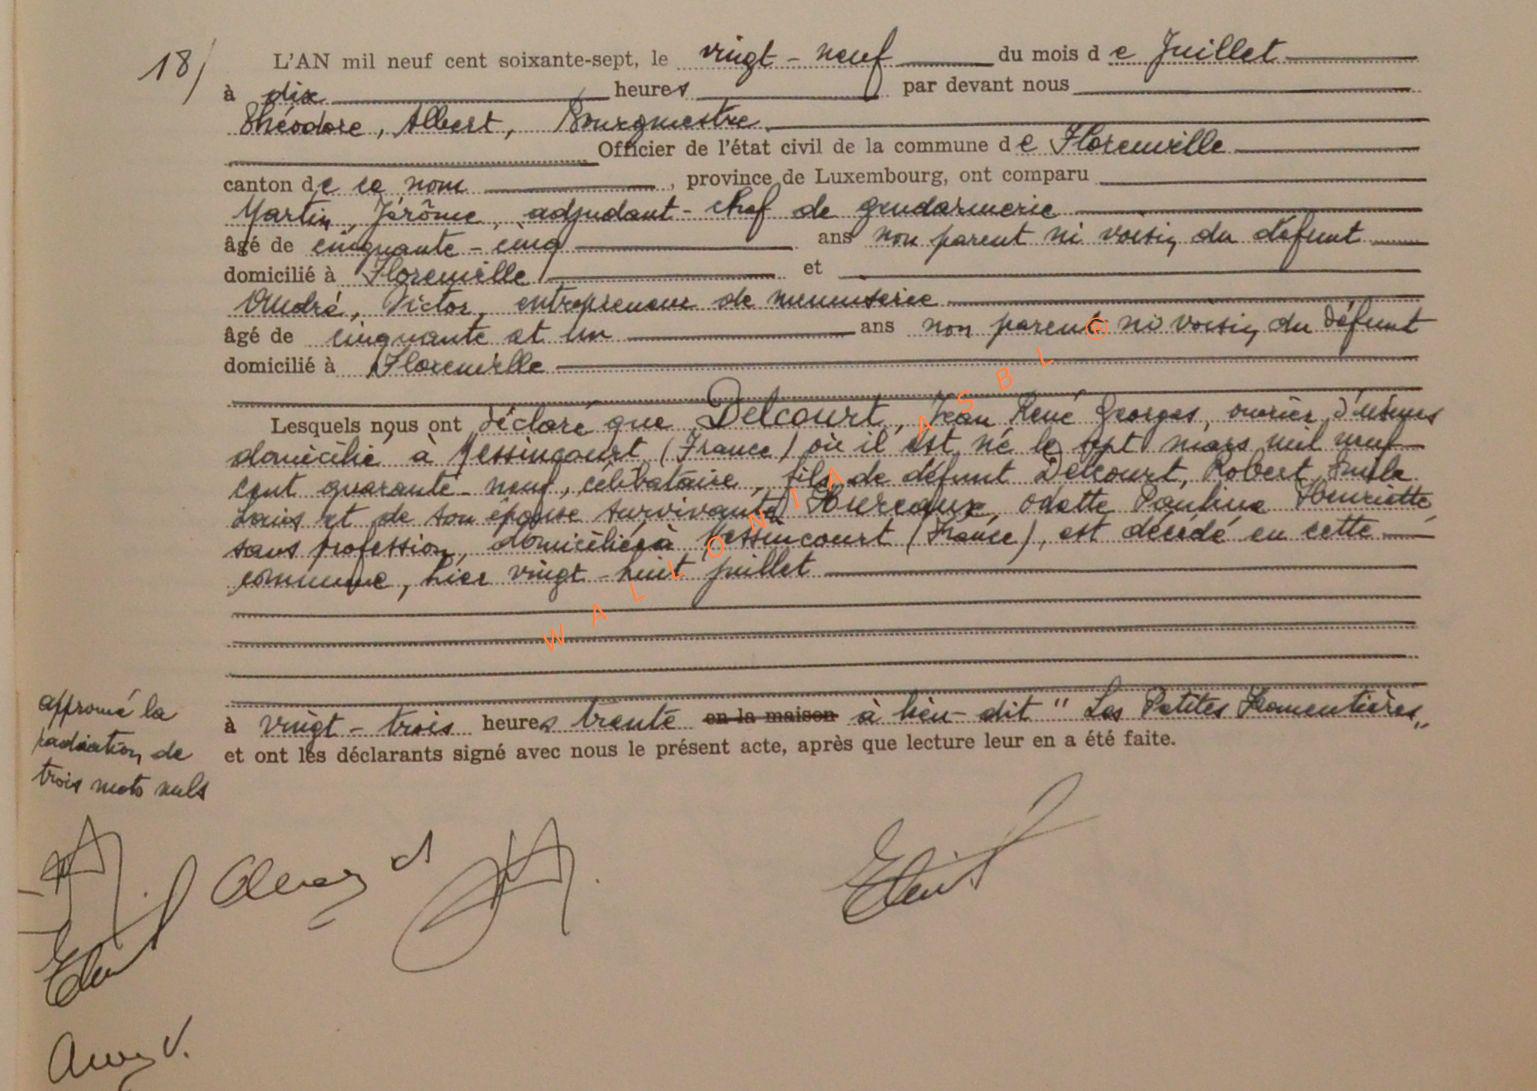 18/
L'AN mil neuf cent soixante-sept, le vingt-neuf du mois de Juillet
à dix heures par devant nous
Théodore, Albert, Bourgmestre
Officier de l'état civil de la commune de Florenville
canton de ce nom, province de Luxembourg, ont comparu
Martin, Jérôme, adjudant-chef de gendarmerie
âgé de cinquante-cinq ans non parent ni voisin du défunt
domicilié à Florenville et
André, Victor, entrepreneur de menuiserie
âgé de cinquante et un ans non parent ni voisin du défunt
domicilié à Florenville
Lesquels nous ont déclaré que Delcourt, Jean René Georges, ouvrier d'usines
domicilié à Messincourt (France) où il est né le sept mars mil neuf
cent quarante-neuf, célibataire, fils de défunt Delcourt, Robert, Emile
Louis et de son épouse survivante Hureaux, Odette Pauline Henriette
sans profession, domiciliée à Messincourt (France), est décédé en cette
commune, hier vingt-huit juillet
à vingt-trois heures trente en la maison à lieu-dit "Les Petites Fromentières"
et ont les déclarants signé avec nous le présent acte, après que lecture leur en a été faite.
approuvé la
radiation de
trois mots nuls
WALLONIA ASBL ©